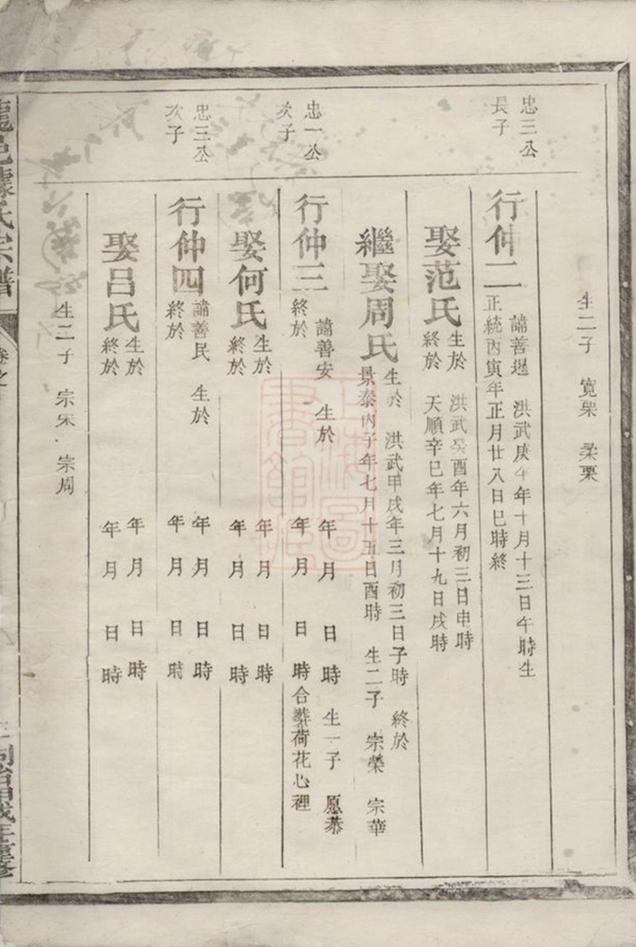 生二子 寬栗 柔栗
忠三公
長子
行仲二
諱善暹 洪武庚午年十月十三日午時生
正統丙寅年正月廿八日巳時終
娶范氏
生於 洪武癸酉年六月初三日申時
終於 天順辛巳年七月十九日戌時
繼娶周氏
生於 洪武甲戌年三月初三日子時 終於
景泰丙子年七月十五日酉時 生二子 宗榮 宗華
忠一公
次子
行仲三
諱善安 生於 年 月 日 時 生一子 愿恭
終於 年 月 日 時 合葬荷花心裡
娶何氏
生於 年 月 日 時
終於 年 月 日 時
忠三公
次子
行仲四
諱善民 生於 年 月 日 時
終於 年 月 日 時
娶呂氏
生於 年 月 日 時
終於 年 月 日 時
生二子 宗宋 宗周
氏宗譜